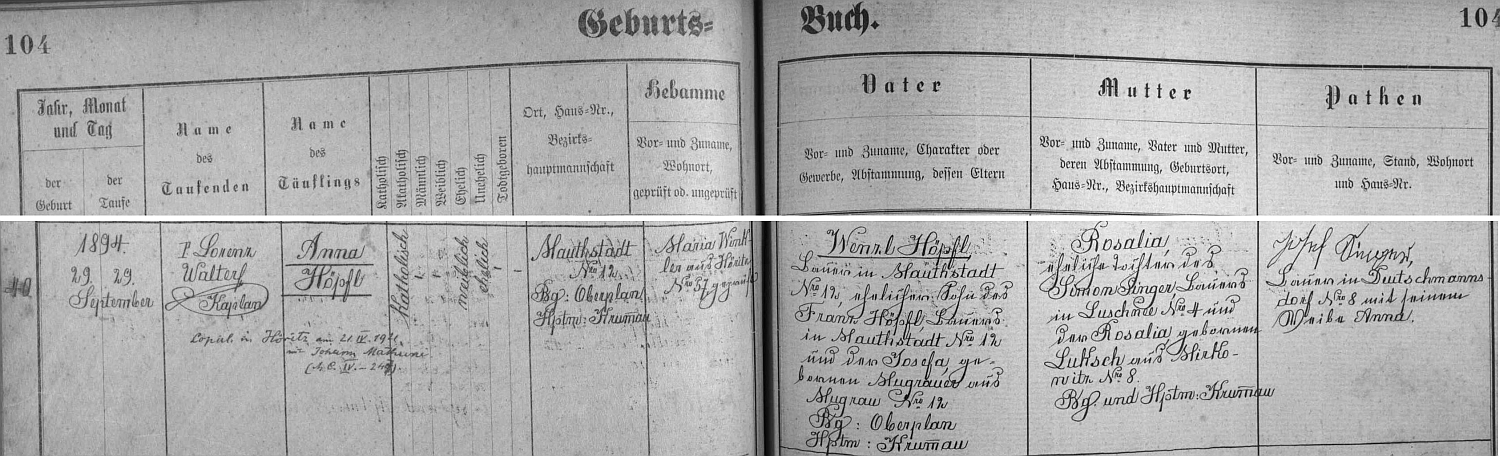 104
Geburts-
Buch.
104
Jahr, Monat
und Tag
der
Geburt
der
Taufe
Name
des
Taufenden
Name
des
Täuflings
Katholisch
Akatholisch
Männlich
Weiblich
Ehelich
Unehelich
Todtgeboren
Ort, Haus-Nr.,
Bezirks-
hauptmannschaft
Hebamme
Vor- und Zuname,
Wohnort,
geprüft od. ungeprüft
Vater
Vor- und Zuname, Charakter oder
Gewerbe, Abstammung, dessen Eltern
Mutter
Vor- und Zuname, Vater und Mutter,
deren Abstammung, Geburtsort,
Haus-Nr., Bezirkshauptmannschaft
Pathen
Vor- und Zuname, Stand, Wohnort
und Haus-Nr.
40
1894.
29. 29.
September
P Lorenz
Walter
Kaplan
Anna
Höpfl
Katholisch
weiblich
ehelich
-
Mauthstadt
Nro 12
Bg: Oberplan
Hptm: Krumau
Maria Wink-
ler aus Höritz
Nro 57 geprüft
Copul. in Höritz am 21. IV. 192
mit Johann
Wenzl Höpfl
Bauer in Mauthstadt
Nro 12, ehelicher Sohn des
Franz Höpfl, Bauers
in Mauthstadt Nro 12
und der Josefa ge-
bornen Mugrauer aus
Mugrau Nro 12
Bg: Oberplan
Hptm: Krumau
Rosalia,
eheliche Tochter des
Simon Singer, Bauers
in Luschne Nro 4 und
der Rosalia, gebornen
Luksch aus Mirko-
witz Nro 8.
Bg. und Hptm: Krumau
Josef Singer,
Bauer in Tutschmanns
dorf Nro 8 mit seinem
Weibe Anna.